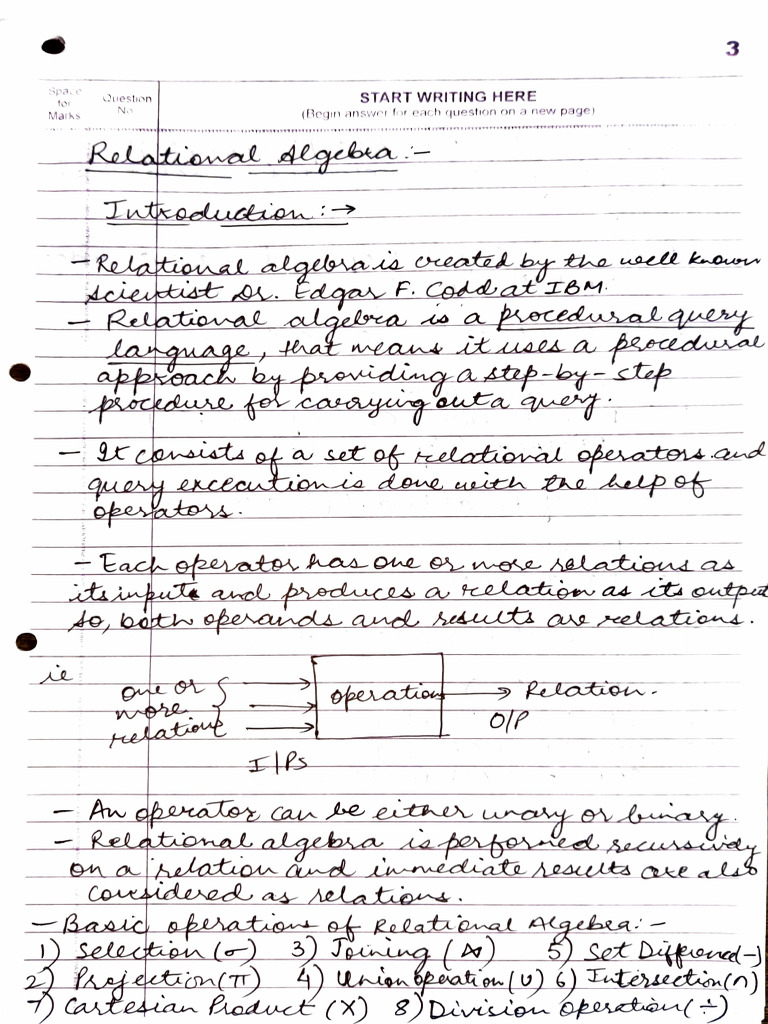 3
Space for Marks
Question No.
START WRITING HERE
(Begin answer for each question on a new page)
Relational Algebra :-
Introduction :→
- Relational algebra is created by the well known
scientist Dr. Edgar F. Codd at IBM.
- Relational algebra is a procedural query
language, that means it uses a procedural
approach by providing a step-by-step
procedure for carrying out a query.
- It consists of a set of relational operators and
query excecution is done with the help of
operators.
- Each operator has one or more relations as
its input and produces a relation as its output
so, both operands and results are relations.
ie
one or
more
relations
operations
→ Relation.
O/P
I/Ps
- An operator can be either unary or binary.
- Relational algebra is performed recursively
on a relation and immediate results are also
considered as relations.
- Basic operations of Relational Algebra:-
1) Selection (σ) 3) Joining (⋈) 5) Set Difference(-)
2) Projection (π) 4) Union operation (∪) 6) Intersection (∩)
7) Cartesian Product (X) 8) Division Operation (÷)